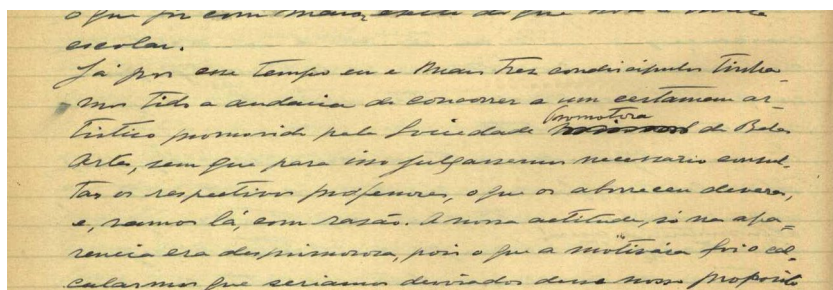 o que foi com maior do que
escolar.
Já por esse tempo eu e mais tres condiscipulos tinha-
mos tido a audacia de concorrer a um certamen ar-
tistico promovido pela Sociedade Promotora de Belas
Artes, sem que para isso julgassemos necessario consul-
tar os respectivos professores, o que os aborreceu deveras,
e, vamos lá, com rasão. A nossa actitude, só na apa-
rencia era desprimorosa, pois o que a motivára foi o cal-
cularmos que seriamos desviados desse nosso proposito